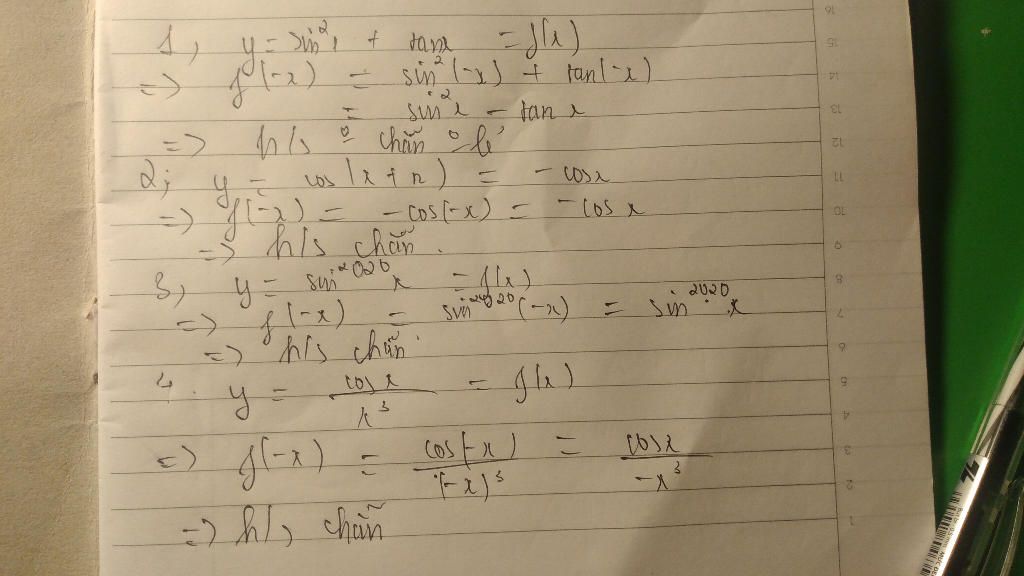 1, y = sin²x + tanx = f(x)
=> f(-x) = sin²(-x) + tan(-x)
= sin²x - tan x
=> h/s o chẵn o lẻ
2; y = cos(x+π) = - cosx
=> f(-x) = -cos(-x) = -cos x
=> h/s chẵn.
3, y = sin²⁰²⁰x = f(x)
=> f(-x) = sin²⁰²⁰(-x) = sin²⁰²⁰x
=> h/s chẵn
4. y = cos x / x³ = f(x)
=> f(-x) = cos(-x) / (-x)³ = cosx / -x³
=> h/s chẵn
16
15
14
13
12
11
10
9
8
7
6
5
4
3
2
1